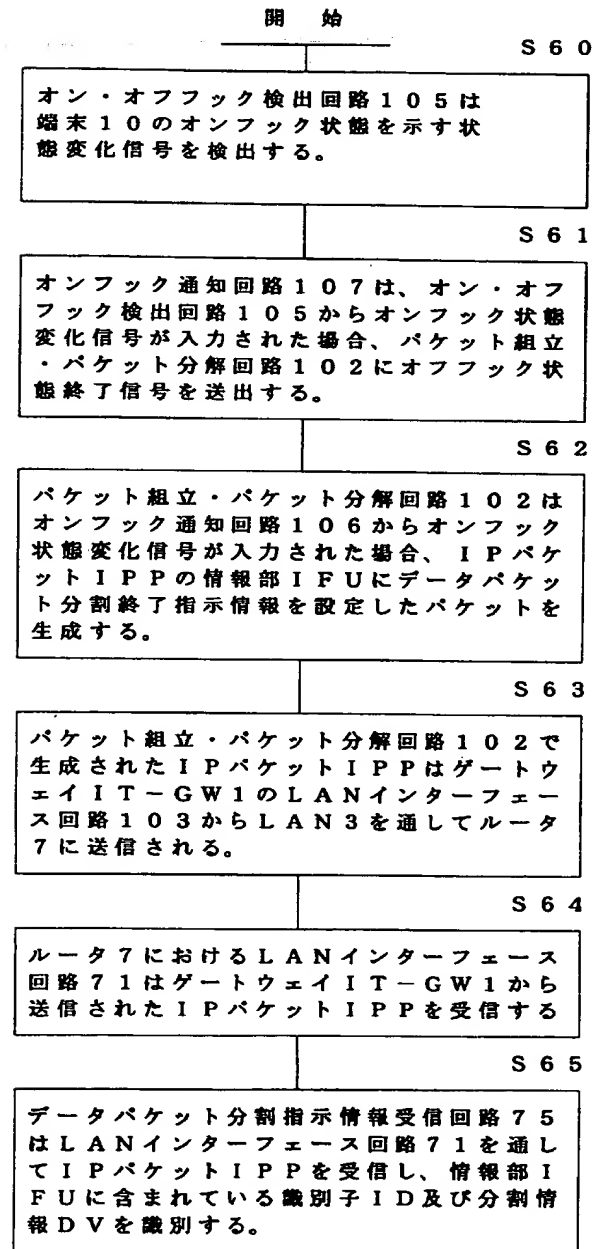 開 始
S60
オン・オフフック検出回路105は
端末10のオンフック状態を示す状
態変化信号を検出する。
S61
オンフック通知回路107は、オン・オフ
フック検出回路105からオンフック状態
変化信号が入力された場合、パケット組立
・パケット分解回路102にオフフック状
態終了信号を送出する。
S62
パケット組立・パケット分解回路102は
オンフック通知回路106からオンフック
状態変化信号が入力された場合、IPパケ
ットIPPの情報部IFUにデータパケッ
ト分割終了指示情報を設定したパケットを
生成する。
S63
パケット組立・パケット分解回路102で
生成されたIPパケットIPPはゲートウ
ェイIT-GW1のLANインターフェー
ス回路103からLAN3を通してルータ
7に送信される。
S64
ルータ7におけるLANインターフェース
回路71はゲートウェイIT-GW1から
送信されたIPパケットIPPを受信する
S65
データパケット分割指示情報受信回路75
はLANインターフェース回路71を通し
てIPパケットIPPを受信し、情報部I
FUに含まれている識別子ID及び分割情
報DVを識別する。